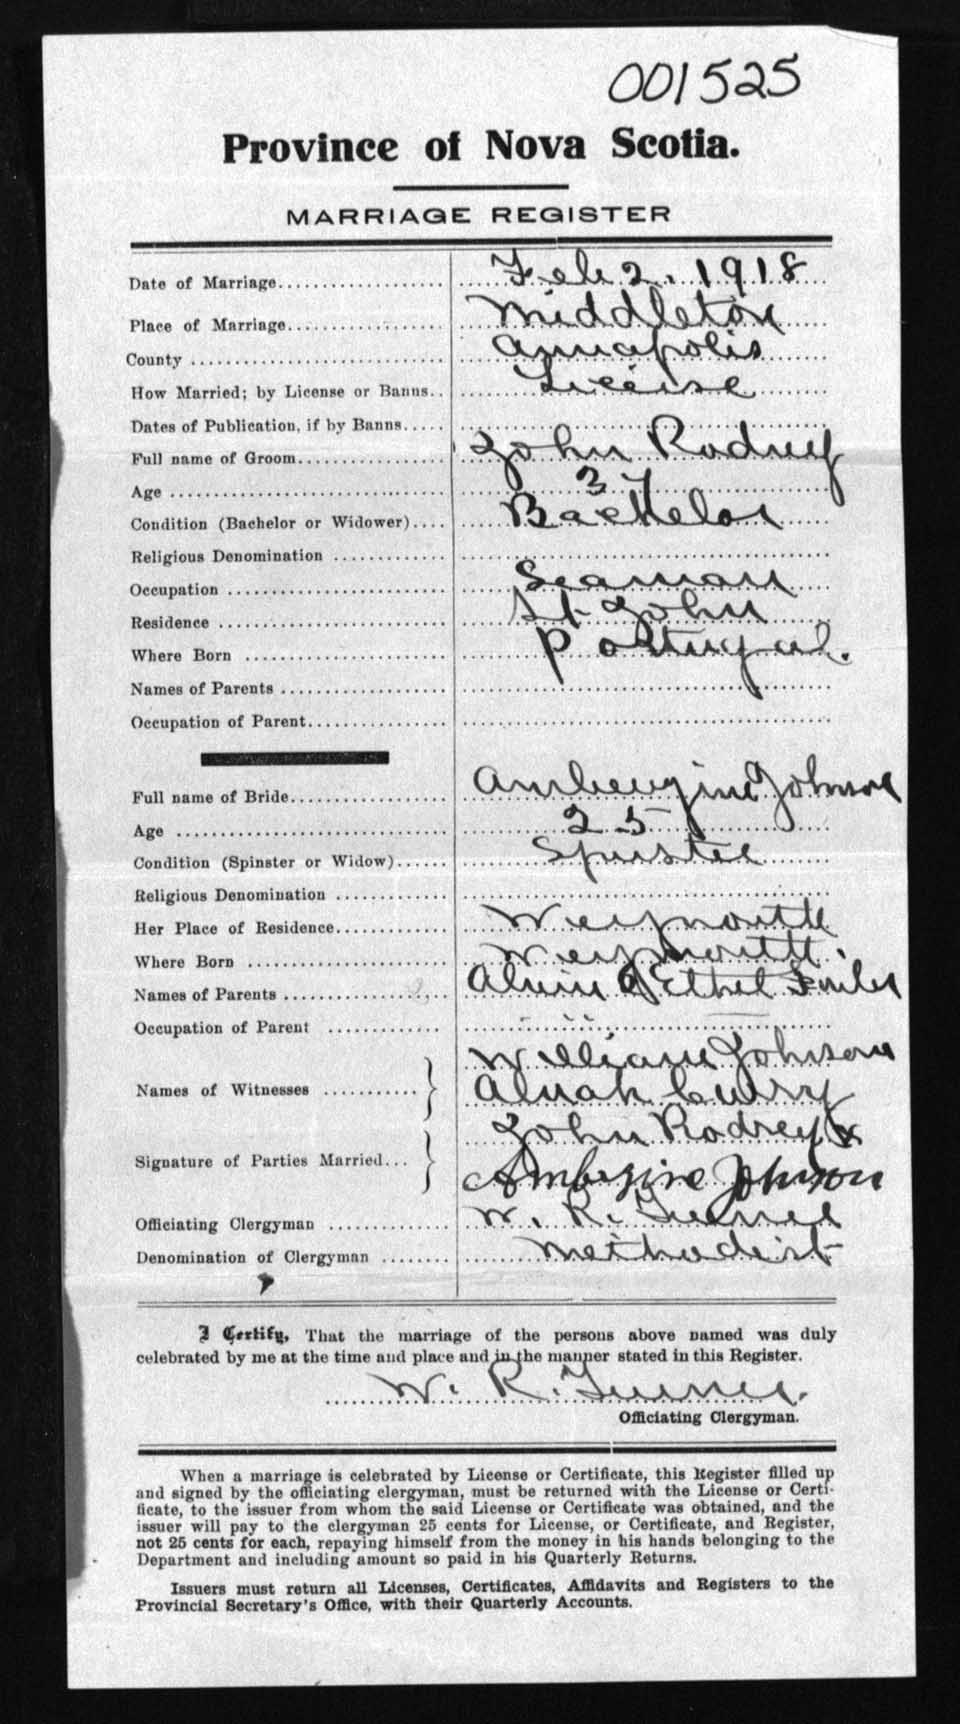 001525
Province of Nova Scotia.
MARRIAGE REGISTER
Date of Marriage Feb 2. 1918
Place of Marriage Middleton
County Annapolis
How Married; by License or Banns License
Dates of Publication, if by Banns
Full name of Groom John Rodney
Age 37
Condition (Bachelor or Widower) Bachelor
Religious Denomination
Occupation Seaman
Residence St. John
Where Born Portugal.
Names of Parents
Occupation of Parent
Full name of Bride Johnson
Age 25
Condition (Spinster or Widow) Spinster
Religious Denomination
Her Place of Residence Weymouth
Where Born Weymouth.
Names of Parents & Ethel
Occupation of Parent
Names of Witnesses William Johnson
Curry
Signature of Parties Married John Rodney X
Johnson
Officiating Clergyman W. R. Turner
Denomination of Clergyman Methodist
I Certify, That the marriage of the persons above named was duly
celebrated by me at the time and place and in the manner stated in this Register.
W. R. Turner.
Officiating Clergyman.
When a marriage is celebrated by License or Certificate, this Register filled up
and signed by the officiating clergyman, must be returned with the License or Certi-
ficate, to the issuer from whom the said License or Certificate was obtained, and the
issuer will pay to the clergyman 25 cents for License, or Certificate, and Register,
not 25 cents for each, repaying himself from the money in his hands belonging to the
Department and including amount so paid in his Quarterly Returns.
Issuers must return all Licenses, Certificates, Affidavits and Registers to the
Provincial Secretary's Office, with their Quarterly Accounts.